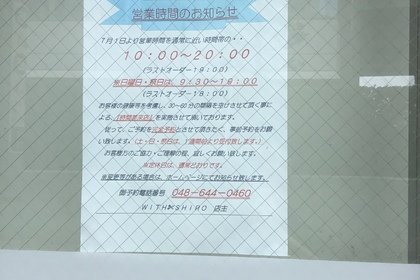 営業時間のお知らせ
7月1日より営業時間を通常に近い時間帯の・・
10:00～20:00
(ラストオーダー19:00)
※日曜日・祭日は、9:30～19:00
(ラストオーダー18:00)
お客様の静穏等を考慮し、30～60分の間隔を空けさせて頂く事に
よる、【時間差来店】を実施させて頂いております。
従って、ご予約を完全予約とさせて頂きたく、事前予約をお願
い致します。(土・日・祭日は、1週間前より受付致します。)
お客様方のご協力・ご理解の程、宜しくお願い致します。
※定休日は、通常どおりです。
※変更等がある場合は、ホームページにてお知らせ致します。
御予約電話番号 048-644-0460
WITH SHIRO 店主